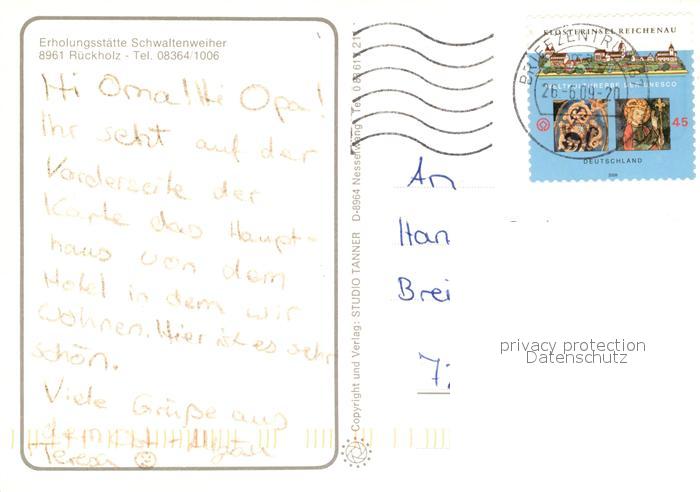 Erholungsstätte Schwaltenweiher
8961 Rückholz - Tel. 08364/1006
Hi Oma! Hi Opa!
Ihr seht auf der
Vorderseite der
Karte das Haupt-
haus von dem
Hotel in dem wir
wohnen. Hier ist es sehr
schön.
Viele Grüße aus
Teresa
Copyright und Verlag: STUDIO TANNER D-8964 Nesselwang
BRIEFZENTRUM
26-6.09-20
KLOSTERINSEL REICHENAU
WELTKULTURERBE DER UNESCO
45
DEUTSCHLAND
An
Han
Brei
7
privacy protection
Datenschutz